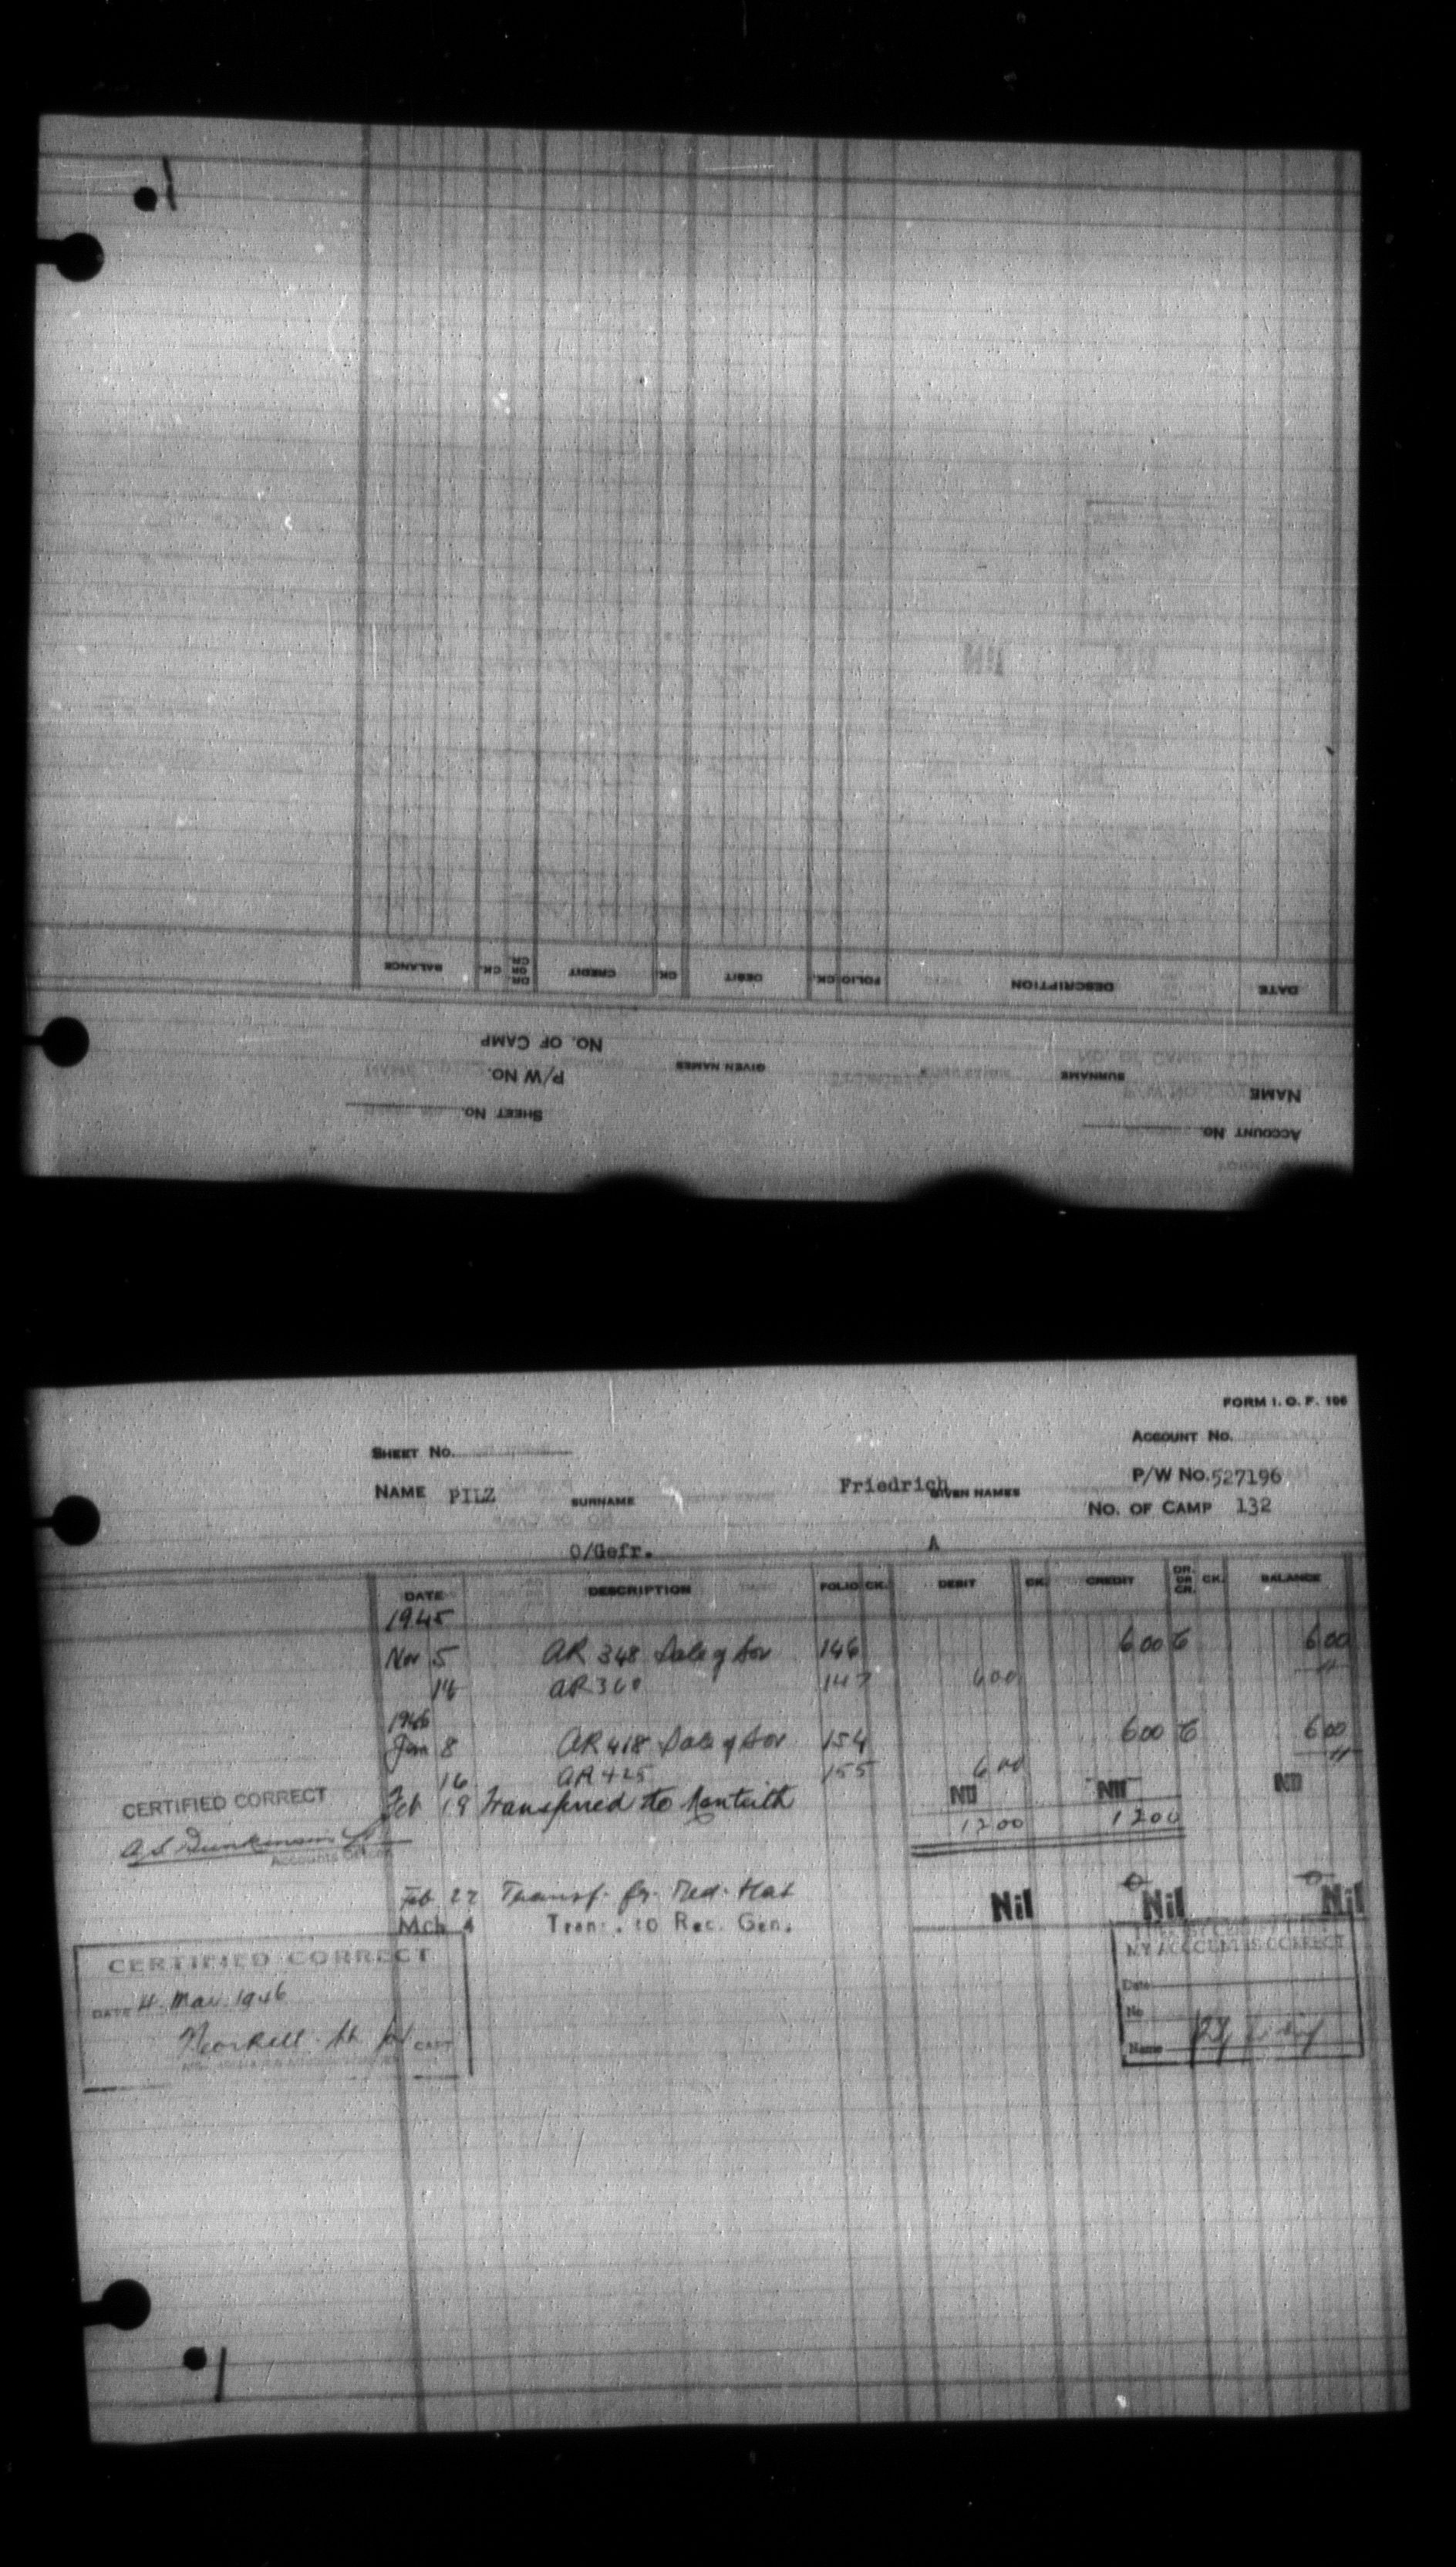 DATE DESCRIPTION FOLIO CK. DEBIT CK. CREDIT DR. OR CR. CK. BALANCE
NAME SURNAME GIVEN NAMES P/W NO. NO. OF CAMP
ACCOUNT NO. SHEET NO.
FORM I. O. F. 106
SHEET NO. ACCOUNT NO.
NAME PILZ SURNAME Friedrich GIVEN NAMES P/W NO. 527196
NO. OF CAMP 132
O/Gefr. A
DATE DESCRIPTION FOLIO CK. DEBIT CK. CREDIT DR. OR CR. CK. BALANCE
1945
Nov 5 AR 348 Sale of Sov 146 6 00 C 6 00
14 AR 360 147 6 00
1946
Jan 8 AR 418 Sale of Sov 154 6 00 C 6 00
16 AR 425 155 6 00
Feb 19 Transferred to Monteith Nil Nil Nil
12 00 12 00
CERTIFIED CORRECT
Accounts Officer
Feb 27 Transf. fr. Med. Hat
Mch 4 Tran. to Rec. Gen. Nil Nil Nil
CERTIFIED CORRECT
DATE 4 Mar. 1946
CAPT
MY ACCOUNT IS CORRECT
Date
No
Name